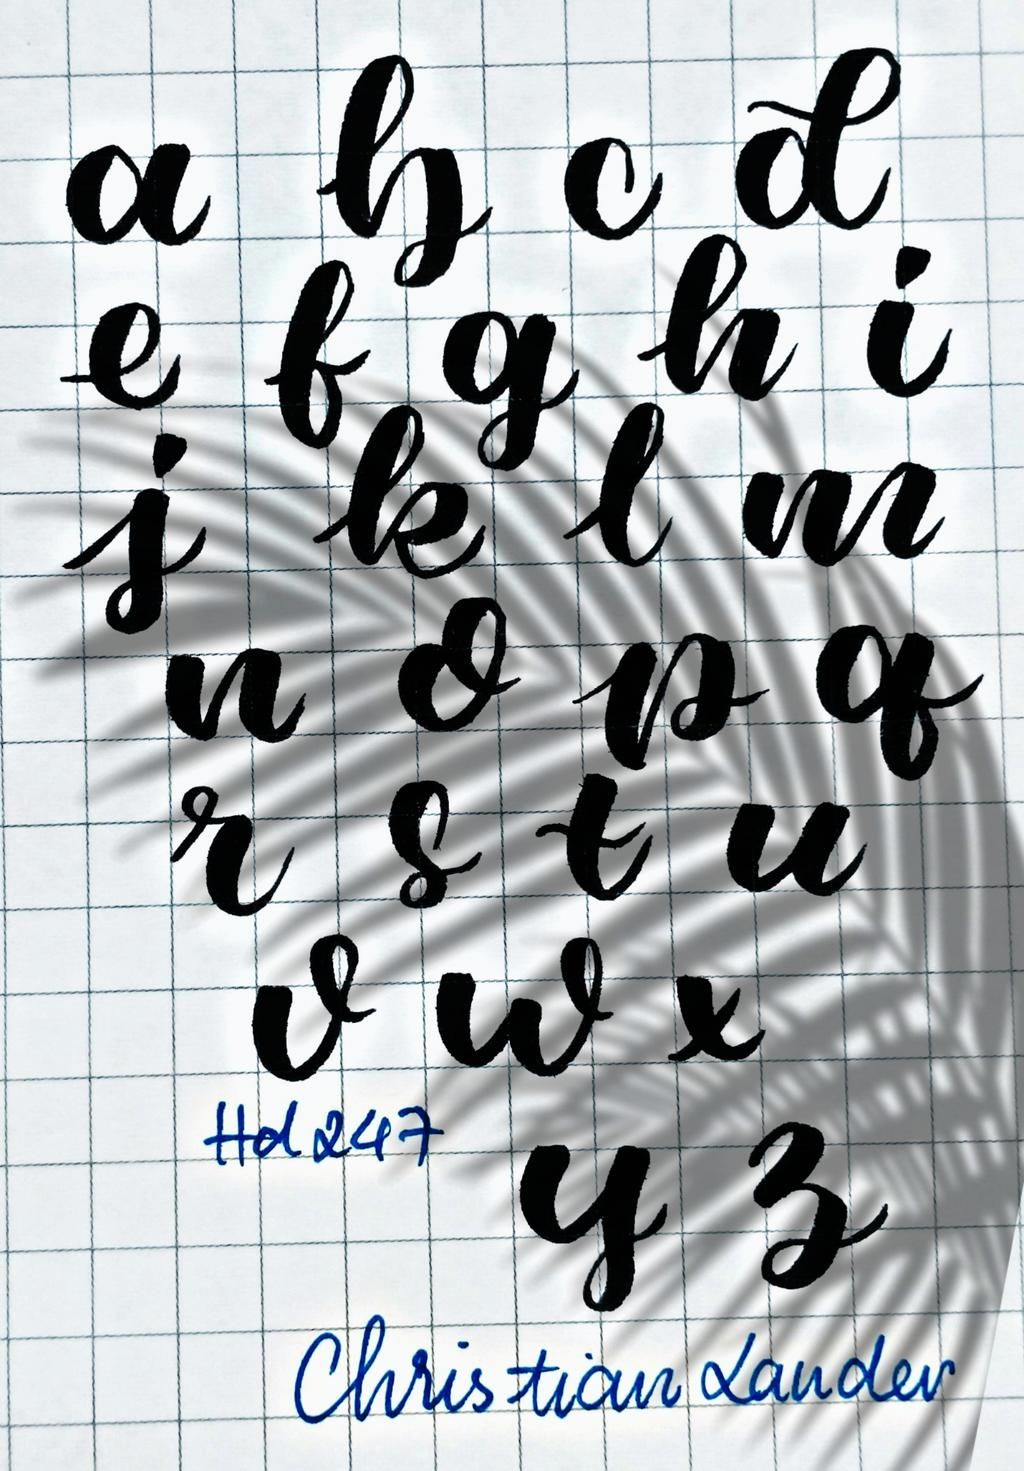 a b c d
e f g h i
j k l m
n o p q
r s t u
v w x
Hd247
y z
Christian Lander